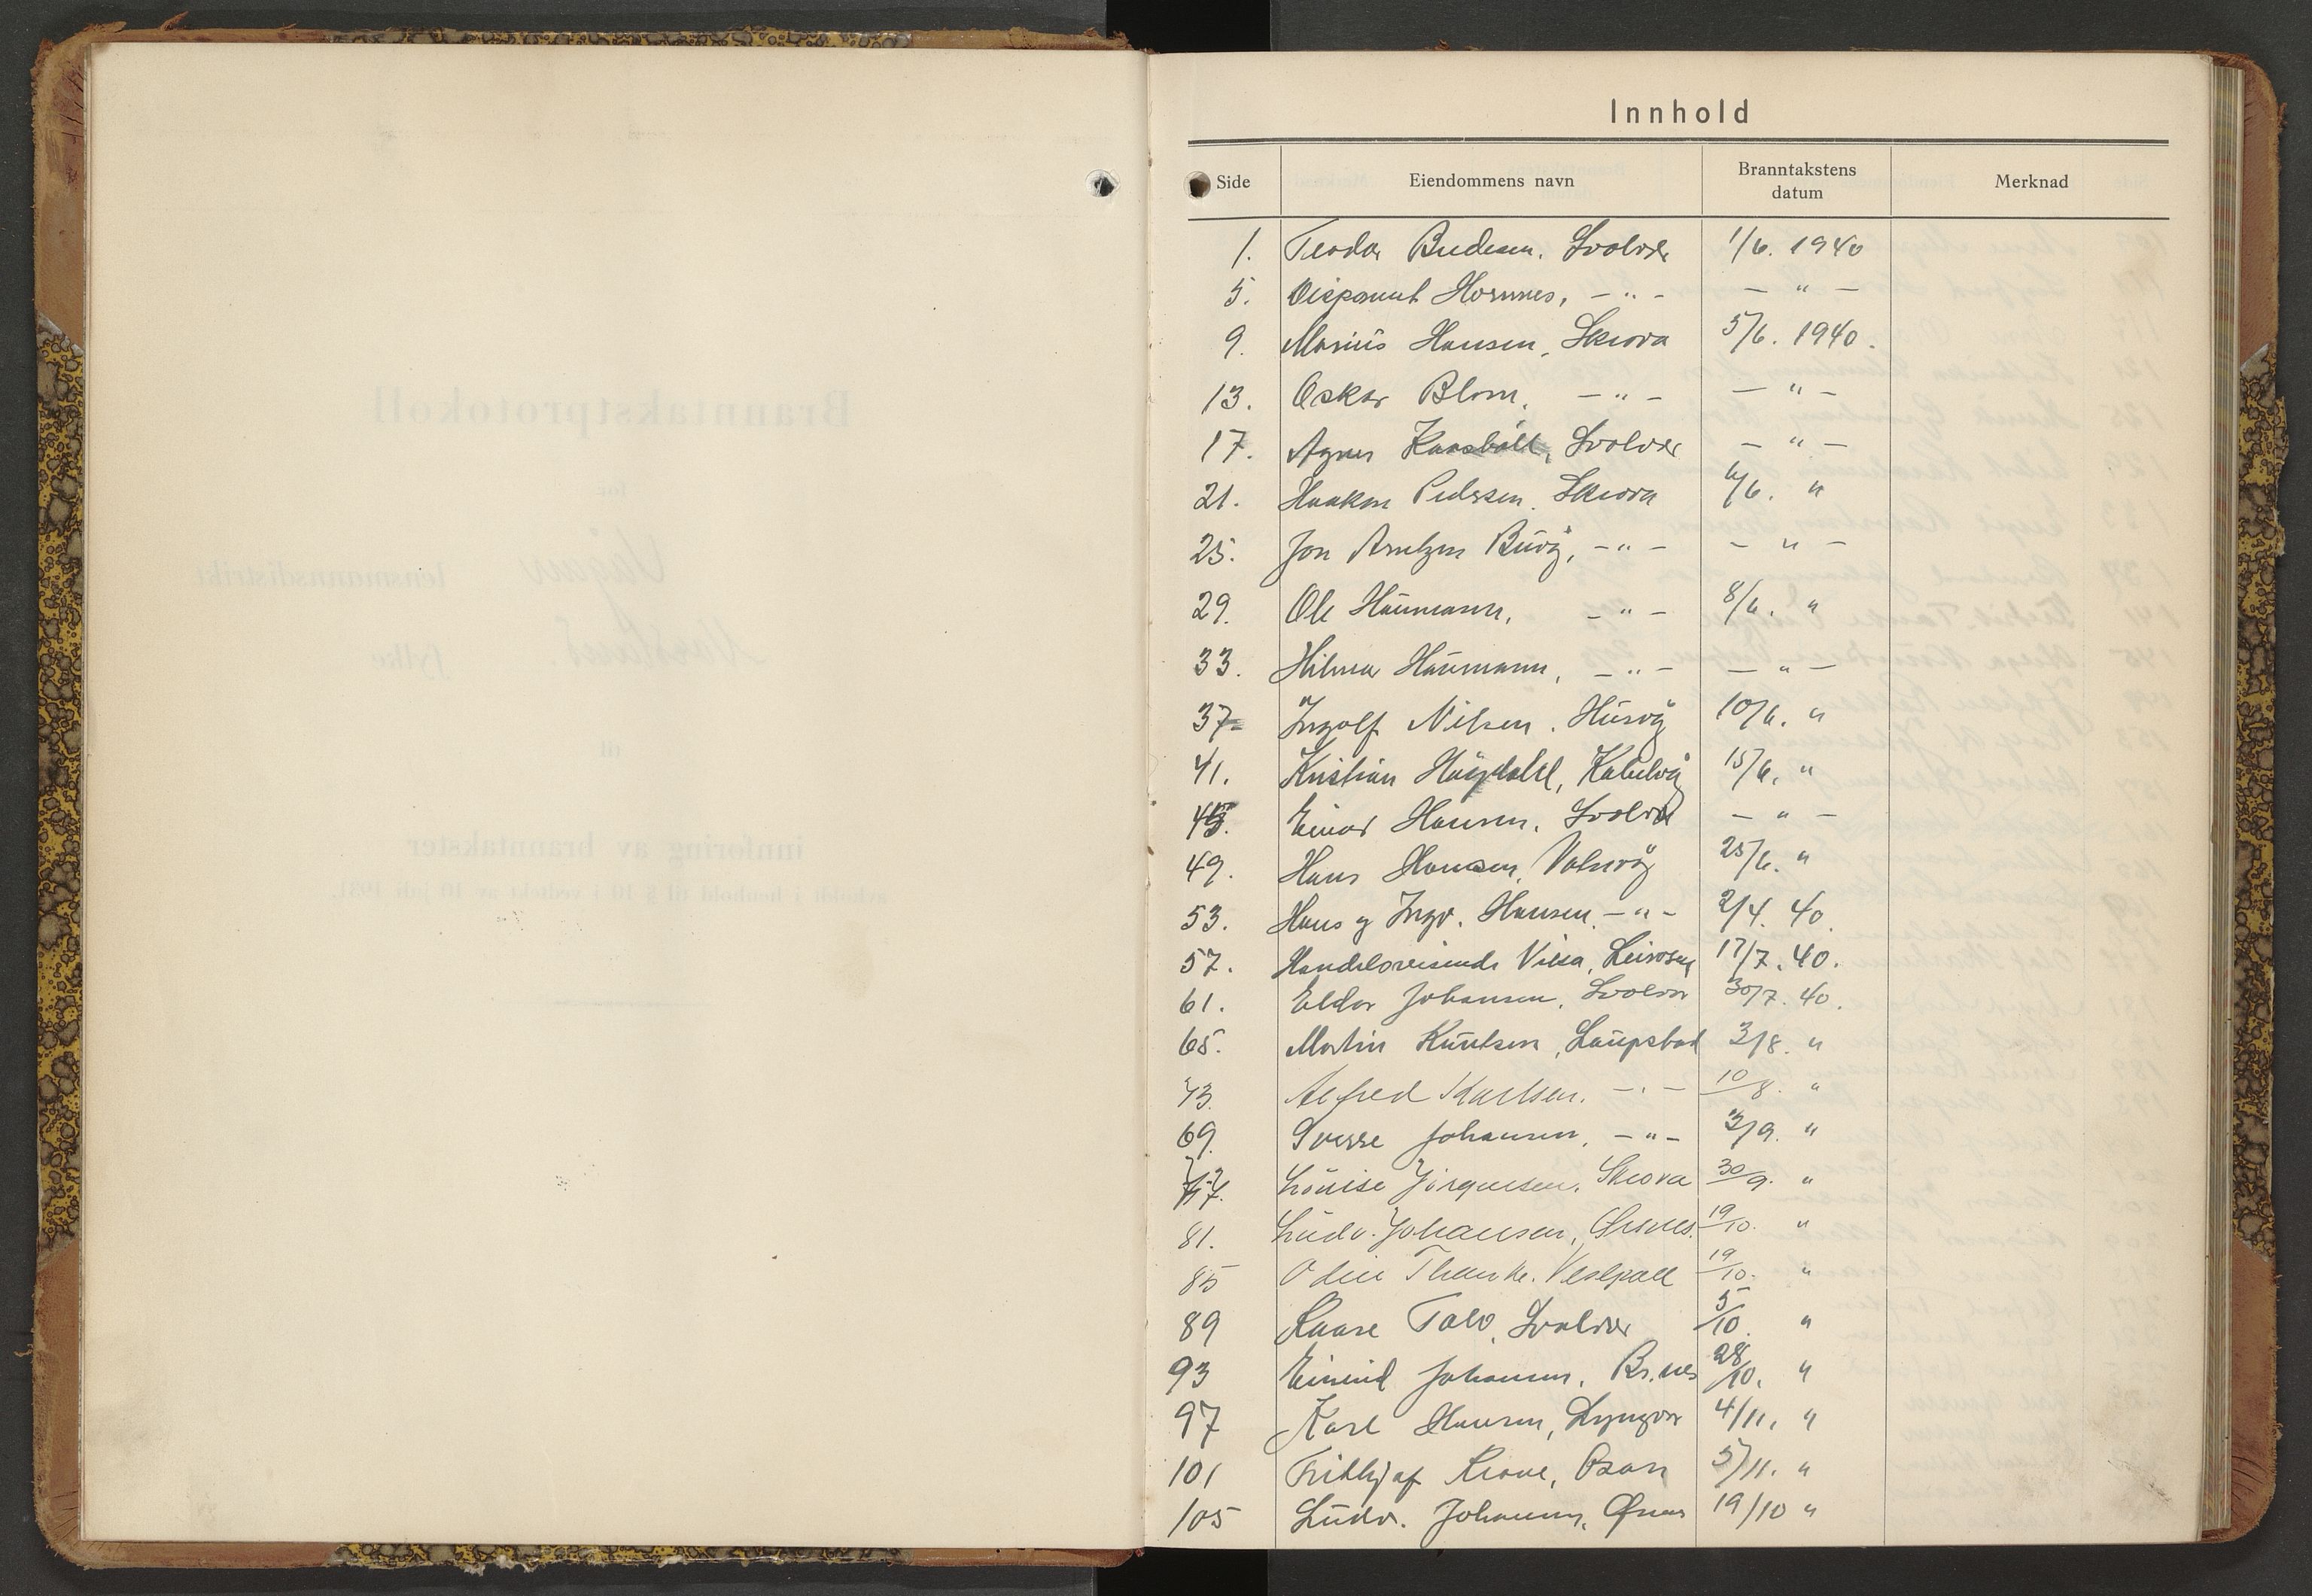 Innhold
Side Eiendommens navn Branntakstens datum Merknad
1. Teodor Svolvær 1/6. 1940
5. Hornnes, - " - - " -
9. Marius Hansen, Skrova 5/6. 1940.
13. Oskar Blom, - " - - " -
17. Agnes Kaasbøll, Svolvær - " -
21. Haakon Pedersen, Skrova 6/6. "
25. Jon Arntzen - " - - " -
29. Ole Haumann, " - 8/6. "
33. Hilmar Haumann, - " - - " -
37 Ingolf Nilsen. Husvåg 10/6. "
41. Kristian Kabelvåg 15/6. "
45. Einar Hansen, Svolvær - " -
49. Hans Hansen, 25/6. "
53. Hans og Ingv. Hansen - " - 2/4. 40.
57. Handelsreisende 17/7. 40.
61. Eldor Johansen, Svolvær 30/7. 40.
65. Martin Knutsen, Laupstad 3/8. "
73. Alfred Karlsen. - " - 10/8. "
69. Sverre Johansen, - " - 3/9. "
77. Louise Jörgensen. Skrova 30/9. "
81. Ludv. Johansen, 19/10. "
85 Odin 19/10. "
89 Kaare Svolvær 5/10. "
93 Johansen, Br.nes 28/10. "
97 Karl Hansen, Lyngvær 4/11. "
101 Fridthjof Osan 5/11. "
105 Ludv. Johansen, 19/10 "